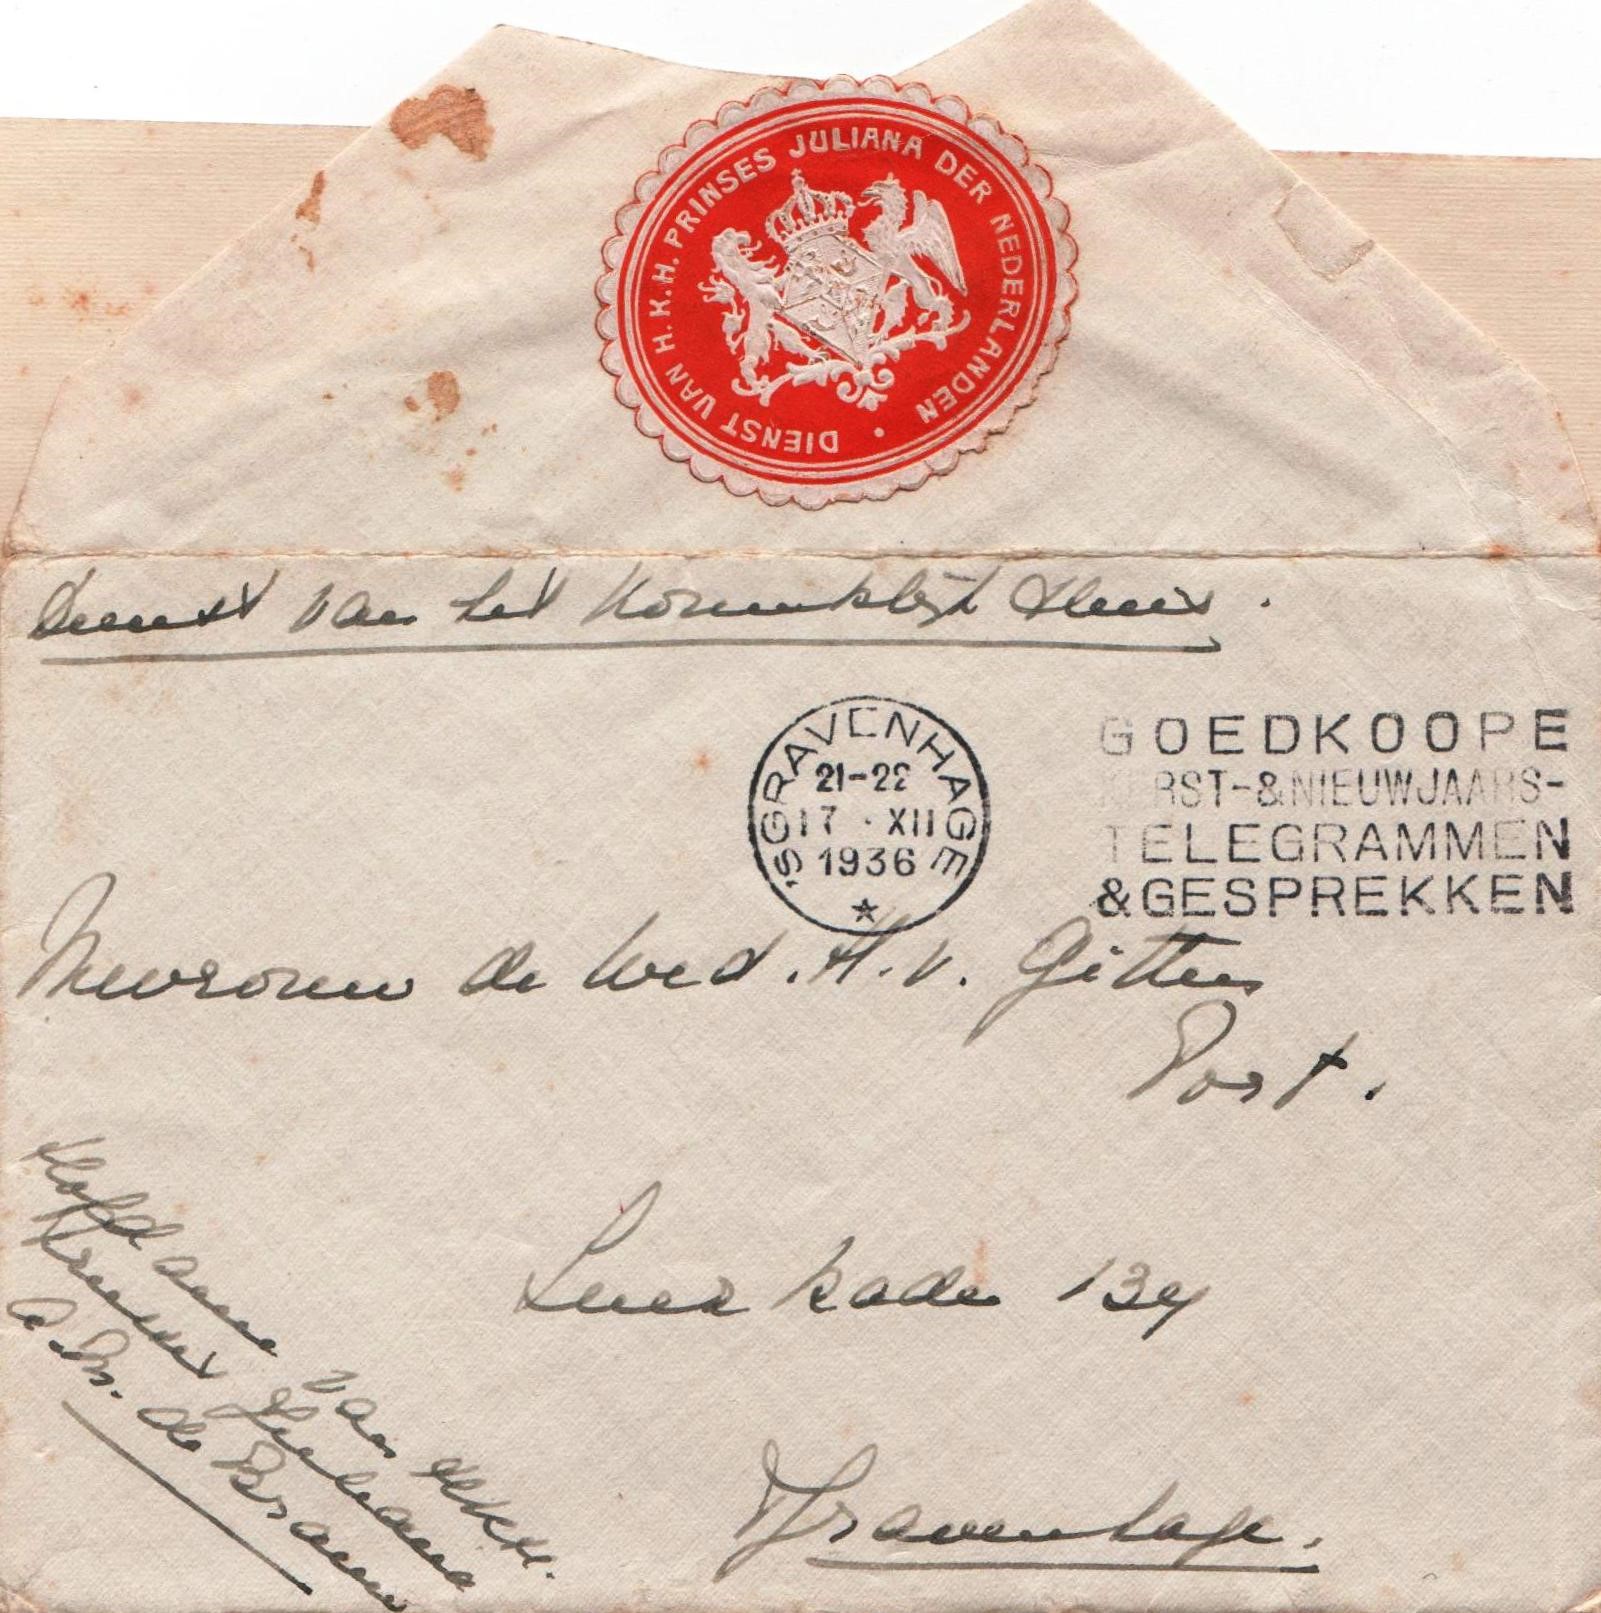 DIENST VAN H.K.H. PRINSES JULIANA DER NEDERLANDEN
Dienst van het Koninklijk Huis.
'SGRAVENHAGE
21-22
17 · XII
1936
GOEDKOOPE
KERST-&NIEUWJAARS-
TELEGRAMMEN
&GESPREKKEN
Mevrouw de Wed. H. v. Gitters
Post.
kade 134
's Gravenhage.
Hofdame van HKH.
Prinses Juliana
de Brauw